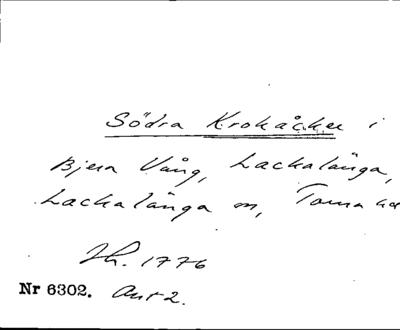 Södra Krokåcker i
Bjera Vång, Lackalänga,
Lackalänga m, Torna
1776
Nr 6302. Ant 2.